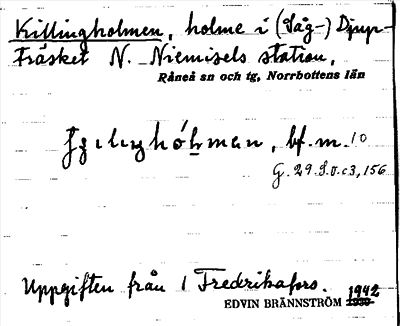 Killingholmen, holme i (Såg-) Djup-
Träsket N. Niemisels station,
Råneå sn och tg, Norrbottens län
bf. m. 10
G. 29. S. 0. c 3, 156
Uppgiften från 1 Fredrikafors.
1942
EDVIN BRÄNNSTRÖM 1939